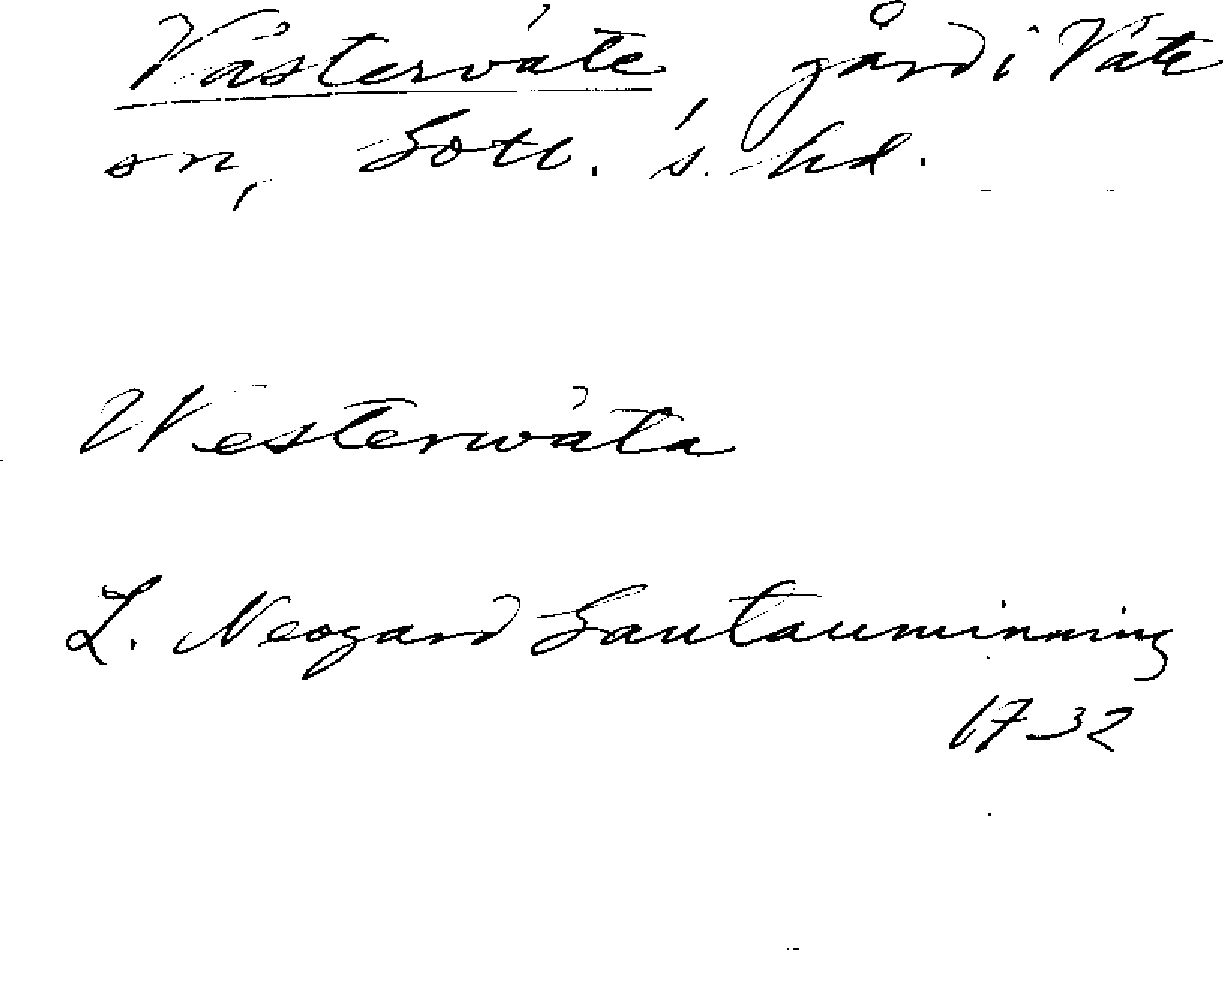 Västerväte gård i Väte
sn, Gotl. s. hd.
Westerwäta
L. Neogard Gautauminning
1732